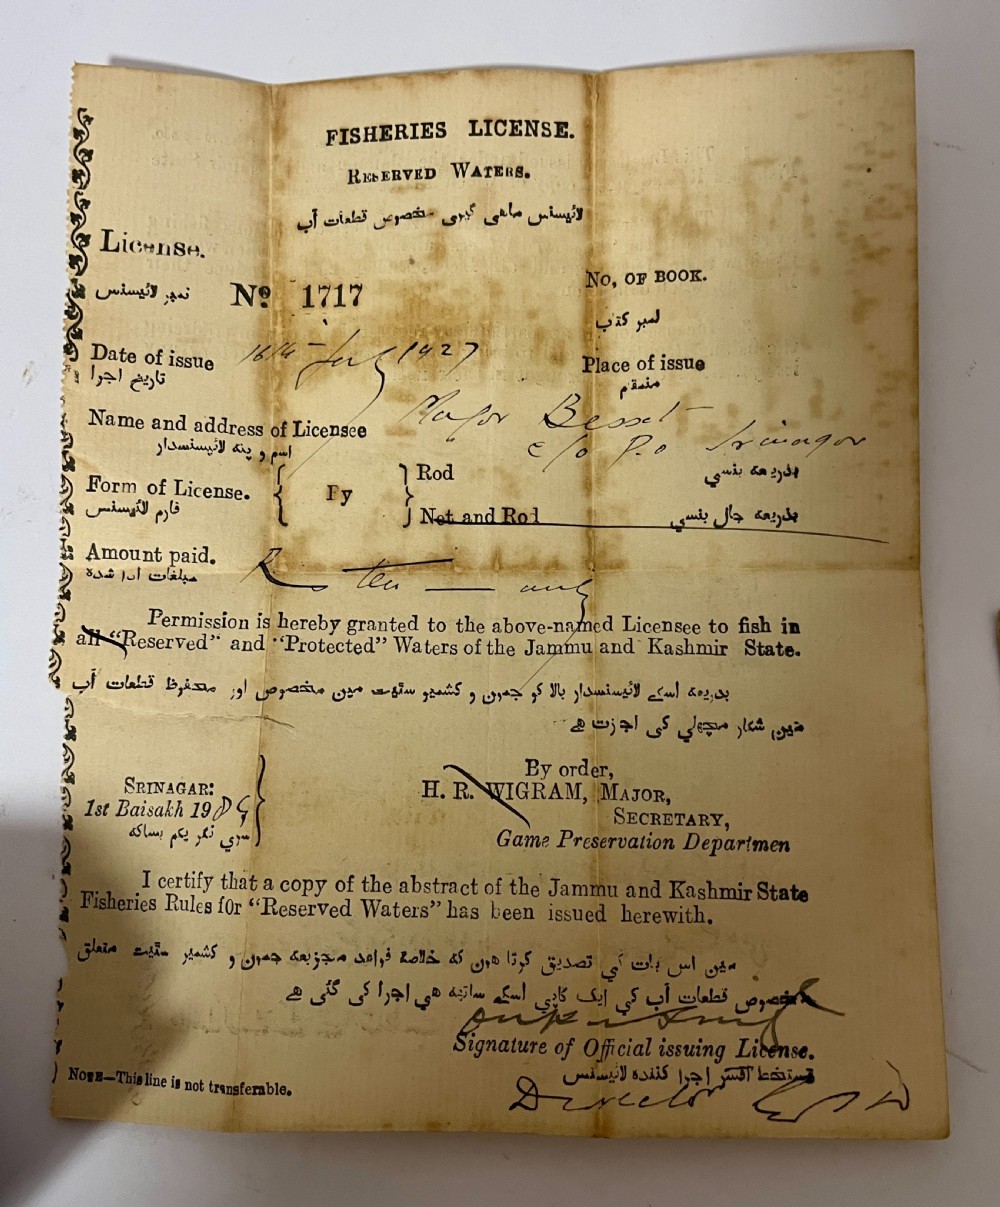 FISHERIES LICENSE.
RESERVED WATERS.
لائیسنس ماهی گیری مخصوص قطعات آب
License.
نمبر لائیسنس
No 1717
No, OF BOOK.
لمبر کتب
Date of issue 16th July 1927
تاریخ اجرا
Place of issue
Name and address of Licensee Major Besset
c/o P.o Srinagar
اسم و پته لائیسنسدار
Form of License. { By } Rod بذریعه بنسی
فارم لائیسنس
Net and Rod بذریعه جال بنسی
Amount paid. Rs ten only
مبلغات ادا شده
Permission is hereby granted to the above-named Licensee to fish in
all "Reserved" and "Protected" Waters of the Jammu and Kashmir State.
بذریعه اسکے لائیسنسدار بالا کو جمون و کشمیر مین مخصوص اور محفوظ قطعات آب
مین شکار مچهلی کی اجزت هے
SRINAGAR:
1st Baisakh 1984
سری نگر یکم بساکه
By order,
H. R. WIGRAM, MAJOR,
SECRETARY,
Game Preservation Departmen
I certify that a copy of the abstract of the Jammu and Kashmir State
Fisheries Rules for "Reserved Waters" has been issued herewith.
مین اس بات کی تصدیق کرتا هون که خلاصه قواعد جمون و کشمیر متعلق
مخصوص قطعات آب کی ایک کاپی اسکے ساتهه هی اجرا کی گئی هے
Signature of Official issuing License.
دستخط افسر اجرا کننده لائیسنس
NOTE—This line is not transferable.
Director